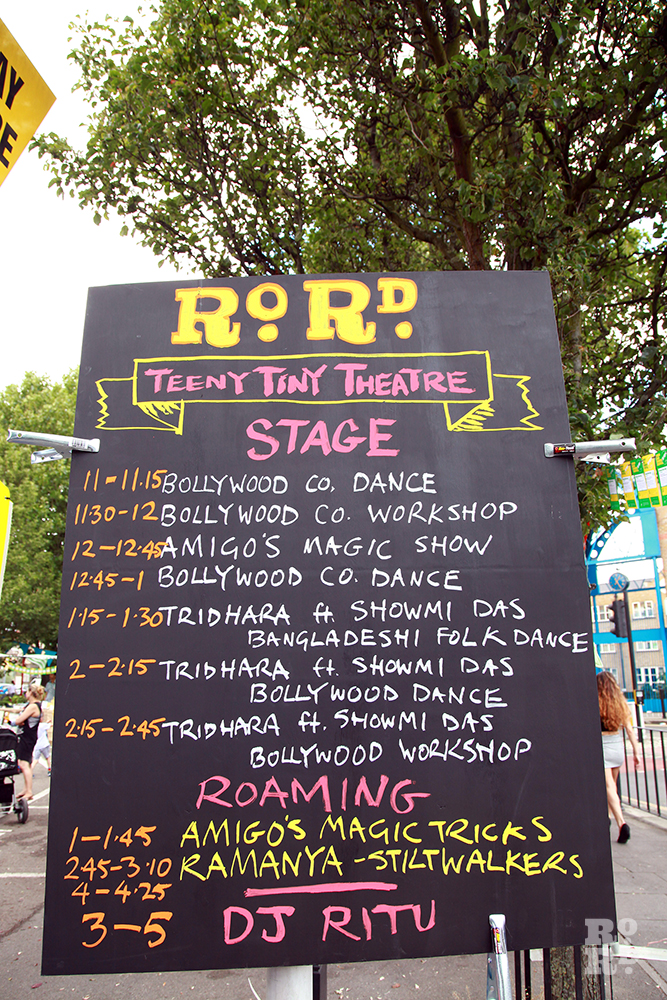 AY
RE
Ro. RD.
TEENY TINY THEATRE
STAGE
11-11.15 BOLLYWOOD CO. DANCE
11:30-12 BOLLYWOOD CO. WORKSHOP
12-12.45 AMIGO'S MAGIC SHOW
12.45-1 BOLLYWOOD CO. DANCE
1.15-1.30 TRIDHARA ft. SHOWMI DAS
BANGLADESHI FOLK DANCE
2-2.15 TRIDHARA ft. SHOWMI DAS
BOLLYWOOD DANCE
2.15-2.45 TRIDHARA ft. SHOWMI DAS
BOLLYWOOD WORKSHOP
ROAMING
1-1.45 AMIGO'S MAGIC TRICKS
2.45-3.10 RAMANYA-STILTWALKERS
4-4.25
3-5 DJ RITU
Ro
RD